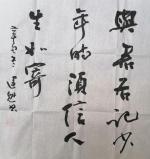 與君各記少
年時須信人
生如寄